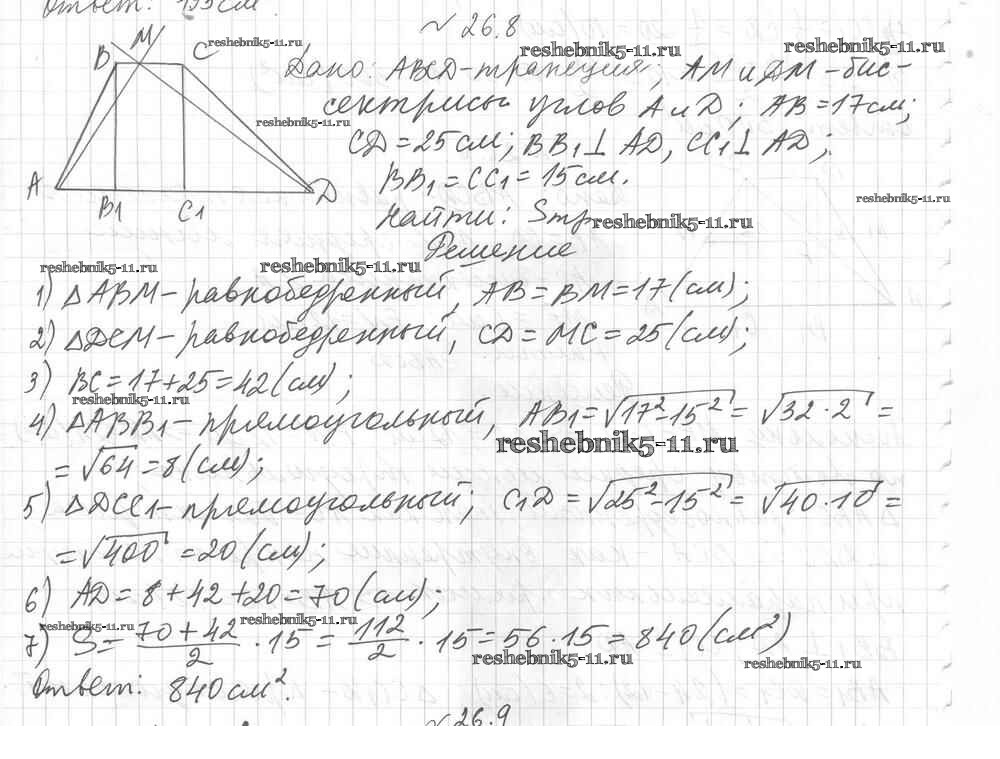 Ответ: 195 см.
№ 26.8
B M C
A B1 C1 D
Дано: ABCD-трапеция; AM и DM - бис-
сектрисы углов A и D; AB = 17 см;
CD = 25 см; BB1 ⊥ AD, CC1 ⊥ AD;
BB1 = CC1 = 15 см.
Найти: Sтр.
Решение
1) △ABM - равнобедренный, AB = BM = 17 (см);
2) △DCM - равнобедренный, CD = MC = 25 (см);
3) BC = 17 + 25 = 42 (см);
4) △ABB1 - прямоугольный, AB1 = √17² - 15² = √32 · 2 =
= √64 = 8 (см);
5) △DCC1 - прямоугольный; C1D = √25² - 15² = √40 · 10 =
= √400 = 20 (см);
6) AD = 8 + 42 + 20 = 70 (см);
7) S = 70 + 42 / 2 · 15 = 112 / 2 · 15 = 56 · 15 = 840 (см²)
Ответ: 840 см².
№ 26.9
reshebnik5-11.ru
reshebnik5-11.ru
reshebnik5-11.ru
reshebnik5-11.ru
reshebnik5-11.ru
reshebnik5-11.ru
reshebnik5-11.ru
reshebnik5-11.ru
reshebnik5-11.ru
reshebnik5-11.ru
reshebnik5-11.ru
reshebnik5-11.ru
reshebnik5-11.ru
reshebnik5-11.ru